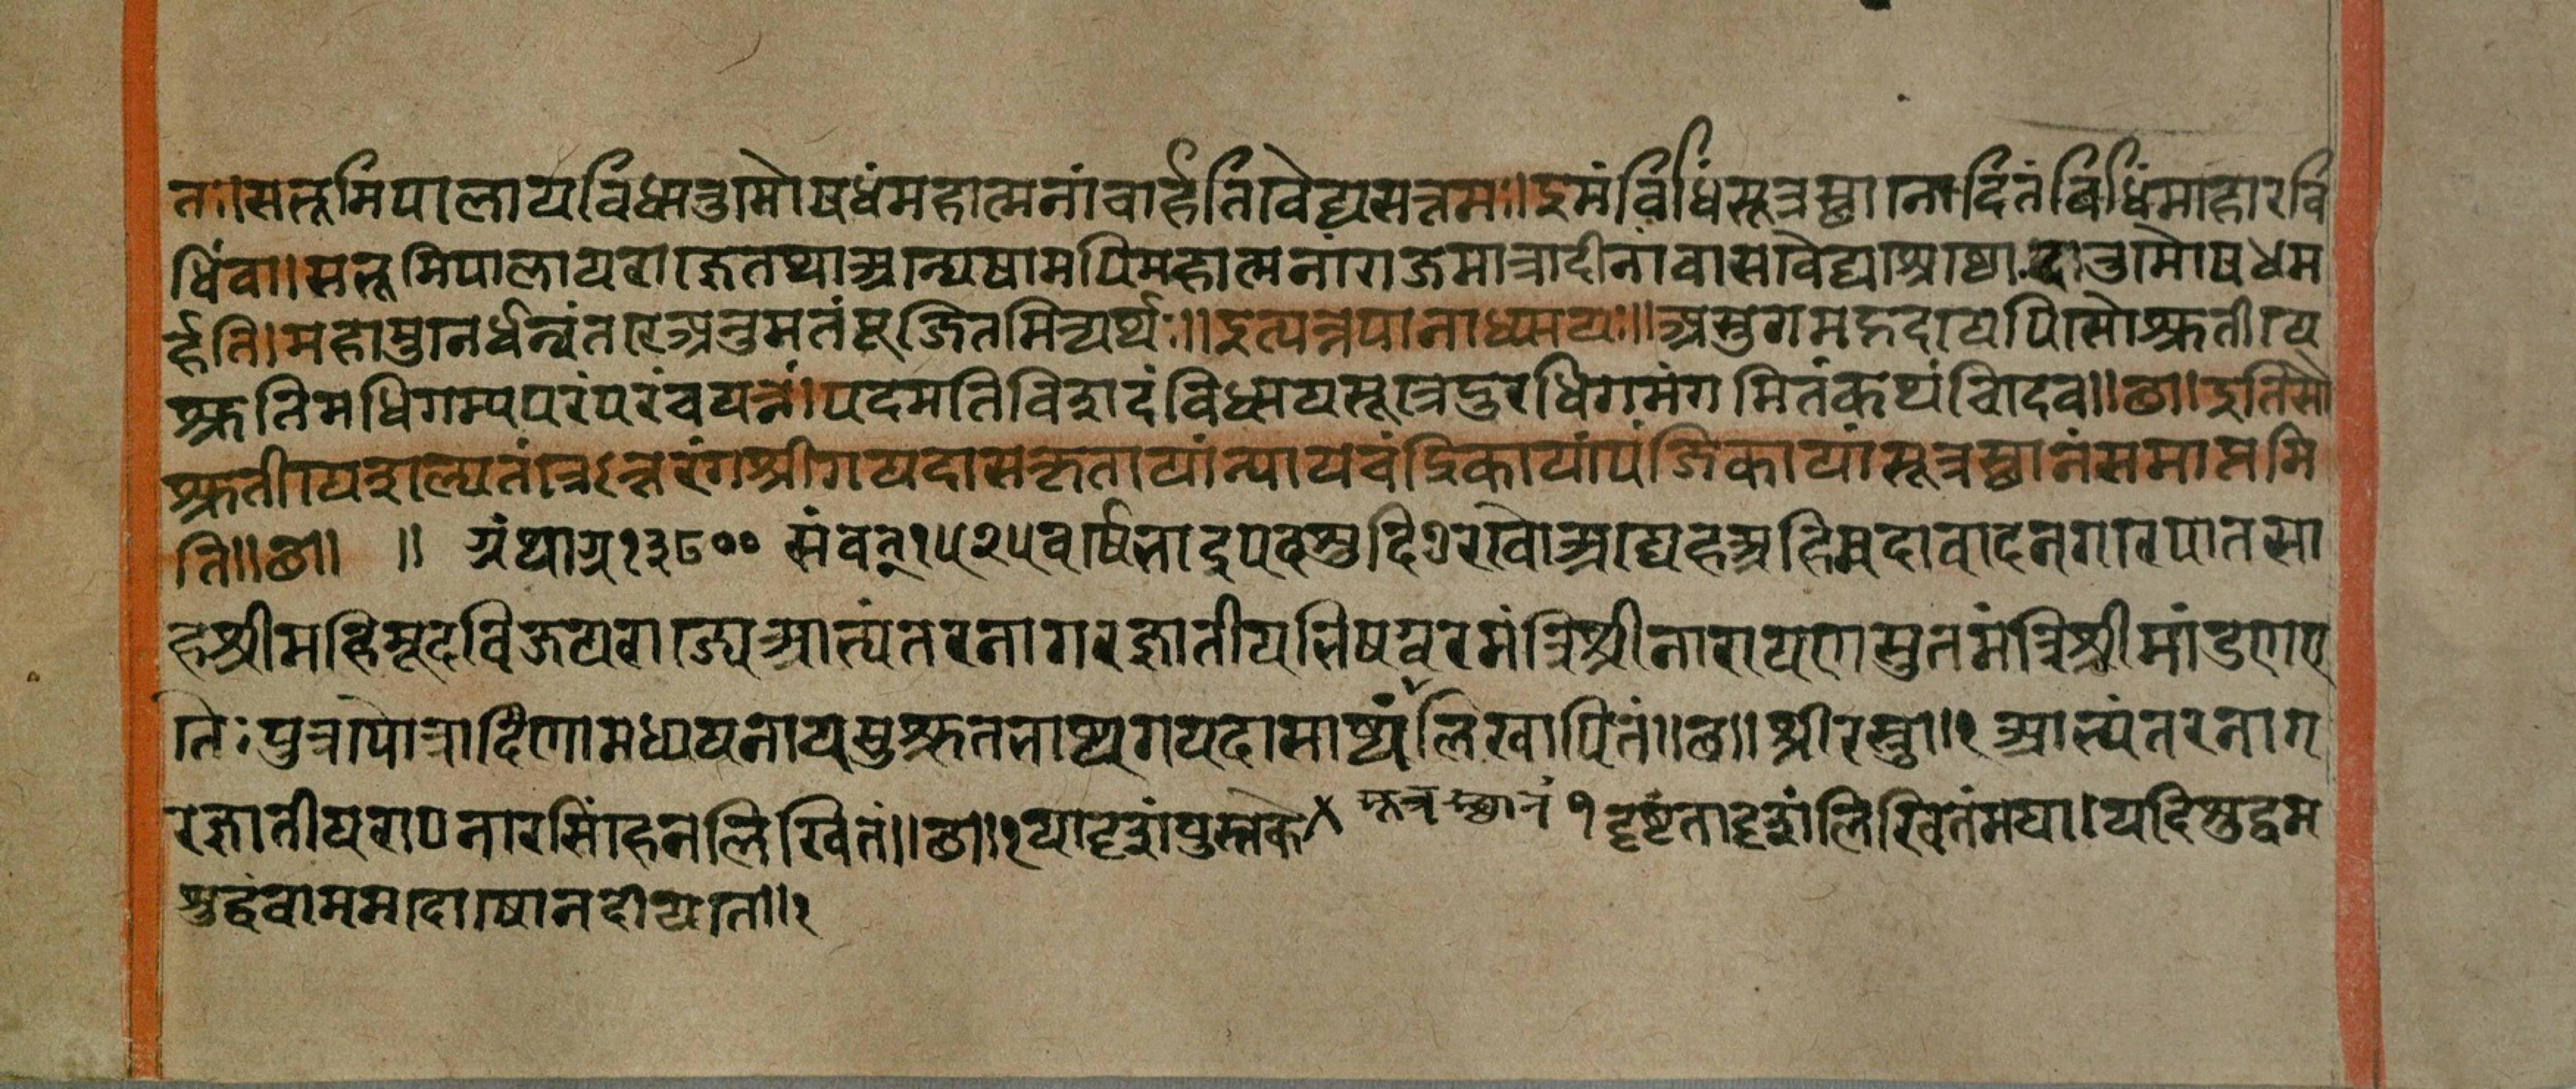 तः॥सभूमिपालायविधातुमौषधंमहात्मनांचार्हतिवैद्यसत्तमः॥इमंविधिंसूत्रस्थानोदितंविधिंमाहारवि
धिंवा।सभूमिपालायराज्ञेतथाअन्येषामपिमहात्मनांराजमात्रादीनांवासवैद्यश्रेष्ठोदातुमौषधम
र्हति।महांस्तुनर्धन्वंतरेअनुमतंपूजितमित्यर्थः॥इत्यन्नपानाध्यायः॥अस्तुगमहृदोयपिसौश्रुतीये
श्रुतिमधिगम्यपरंपरंचयत्नं।पदमतिविशदंविधायसूत्रेदुरधिगमंगमितंकथंचिदेव॥छ॥इतिसौ
श्रुतीयेशल्यतंत्रेऽन्तरंगश्रीगयदासकृतायांन्यायचंद्रिकायांपंजिकायांसूत्रस्थानंसमाप्तमि
ति॥छ॥ ॥ ग्रंथाग्र१३८०० संवत्१५२५वर्षेभाद्रपदशुदि७रवौअद्येहअहिमदावादनगरेपातसा
हश्रीमहिमूदविजयराज्येआभ्यंतरनागरज्ञातीयभिषग्वरमंत्रिश्रीनारायणसुतमंत्रिश्रीमांडणेए
तैःपुत्रपौत्रादिणामध्ययनायसुश्रुतभाष्यगयदासाष्यंलिखापितं॥छ॥श्रीरस्तु॥१आभ्यंतरनाग
रज्ञातीयरापनारसिंहेनलिखितं॥छ॥१यादृशंपुस्तके सूत्रस्थानं १ दृष्टंतादृशंलिखितंमया।यदिशुद्धम
शुद्धंवाममदोषोनदीयते॥१